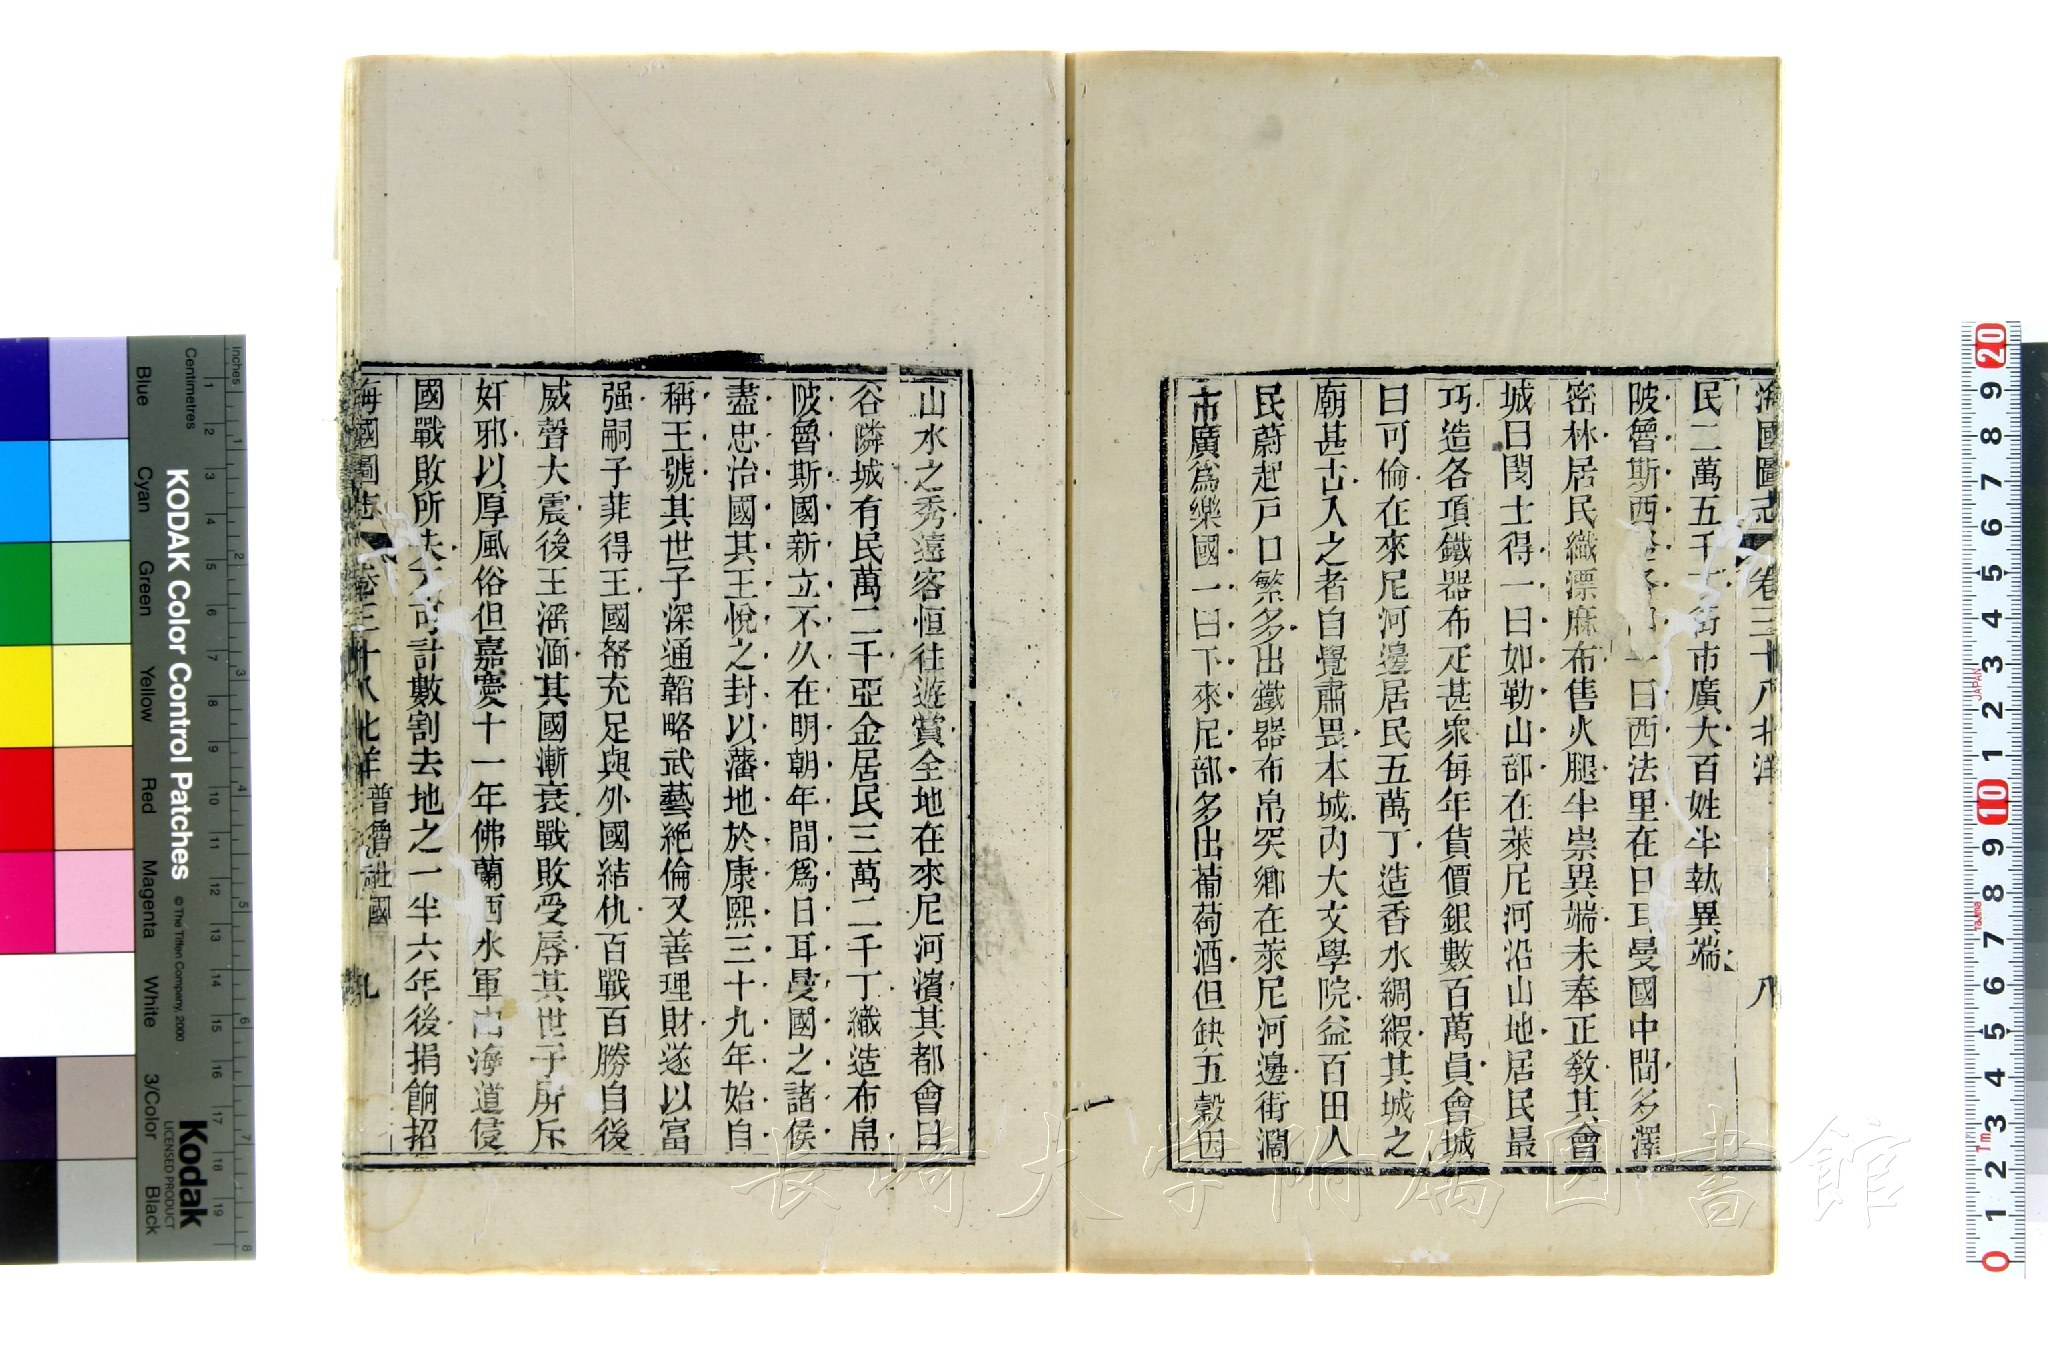 海國圖志 卷三十八 北洋 八
民二萬五千丁街市廣大百姓半執異端
陂魯斯西 一曰西法里在日耳曼國中間多澤
密林居民織漂麻布售火腿半崇異端未奉正教其會
城曰閔士得一曰如勒山部在萊尼河沿山地居民最
巧造各項鐵器布疋甚眾每年貨價銀數百萬員會城
曰可倫在來尼河邊居民五萬丁造香水綢緞其城之
廟甚古入之者自覺肅畏本城內大文學院益百田人
民蔚起戶口繁多出鐵器布帛突鄉在萊尼河邊街濶
市廣爲樂國一曰下來尼部多出葡萄酒但缺五穀因
山水之秀遠客恒往遊賞全地在來尼河濱其都會曰
谷隣城有民萬二千亞金居民三萬二千丁織造布帛
陂魯斯國新立不久在明朝年間爲日耳曼國之諸侯
盡忠治國其王悅之封以藩地於康熙三十九年始自
稱王號其世子深通韜略武藝絕倫又善理財遂以富
强嗣子菲得王國帑充足與外國結仇百戰百勝自後
威聲大震後王湎其國漸衰戰敗受辱其世子所斥
奸邪以厚風俗但嘉慶十一年佛蘭西水軍由海道侵
國戰敗所失不可計數割去地之一半六年後捐餉招
海國圖志 卷三十八 北洋 普魯社國 九
KODAK Color Control Patches
© The Tiffen Company, 2000
Kodak
LICENSED PRODUCT
Blue Cyan Green Yellow Red Magenta White 3/Color Black
Inches 1 2 3 4 5 6 7 8
Centimetres 1 2 3 4 5 6 7 8 9 10 11 12 13 14 15 16 17 18 19
20 9 8 7 6 5 4 3 2 1 10 9 8 7 6 5 4 3 2 1 0
JAPAN
長崎大学附属図書館